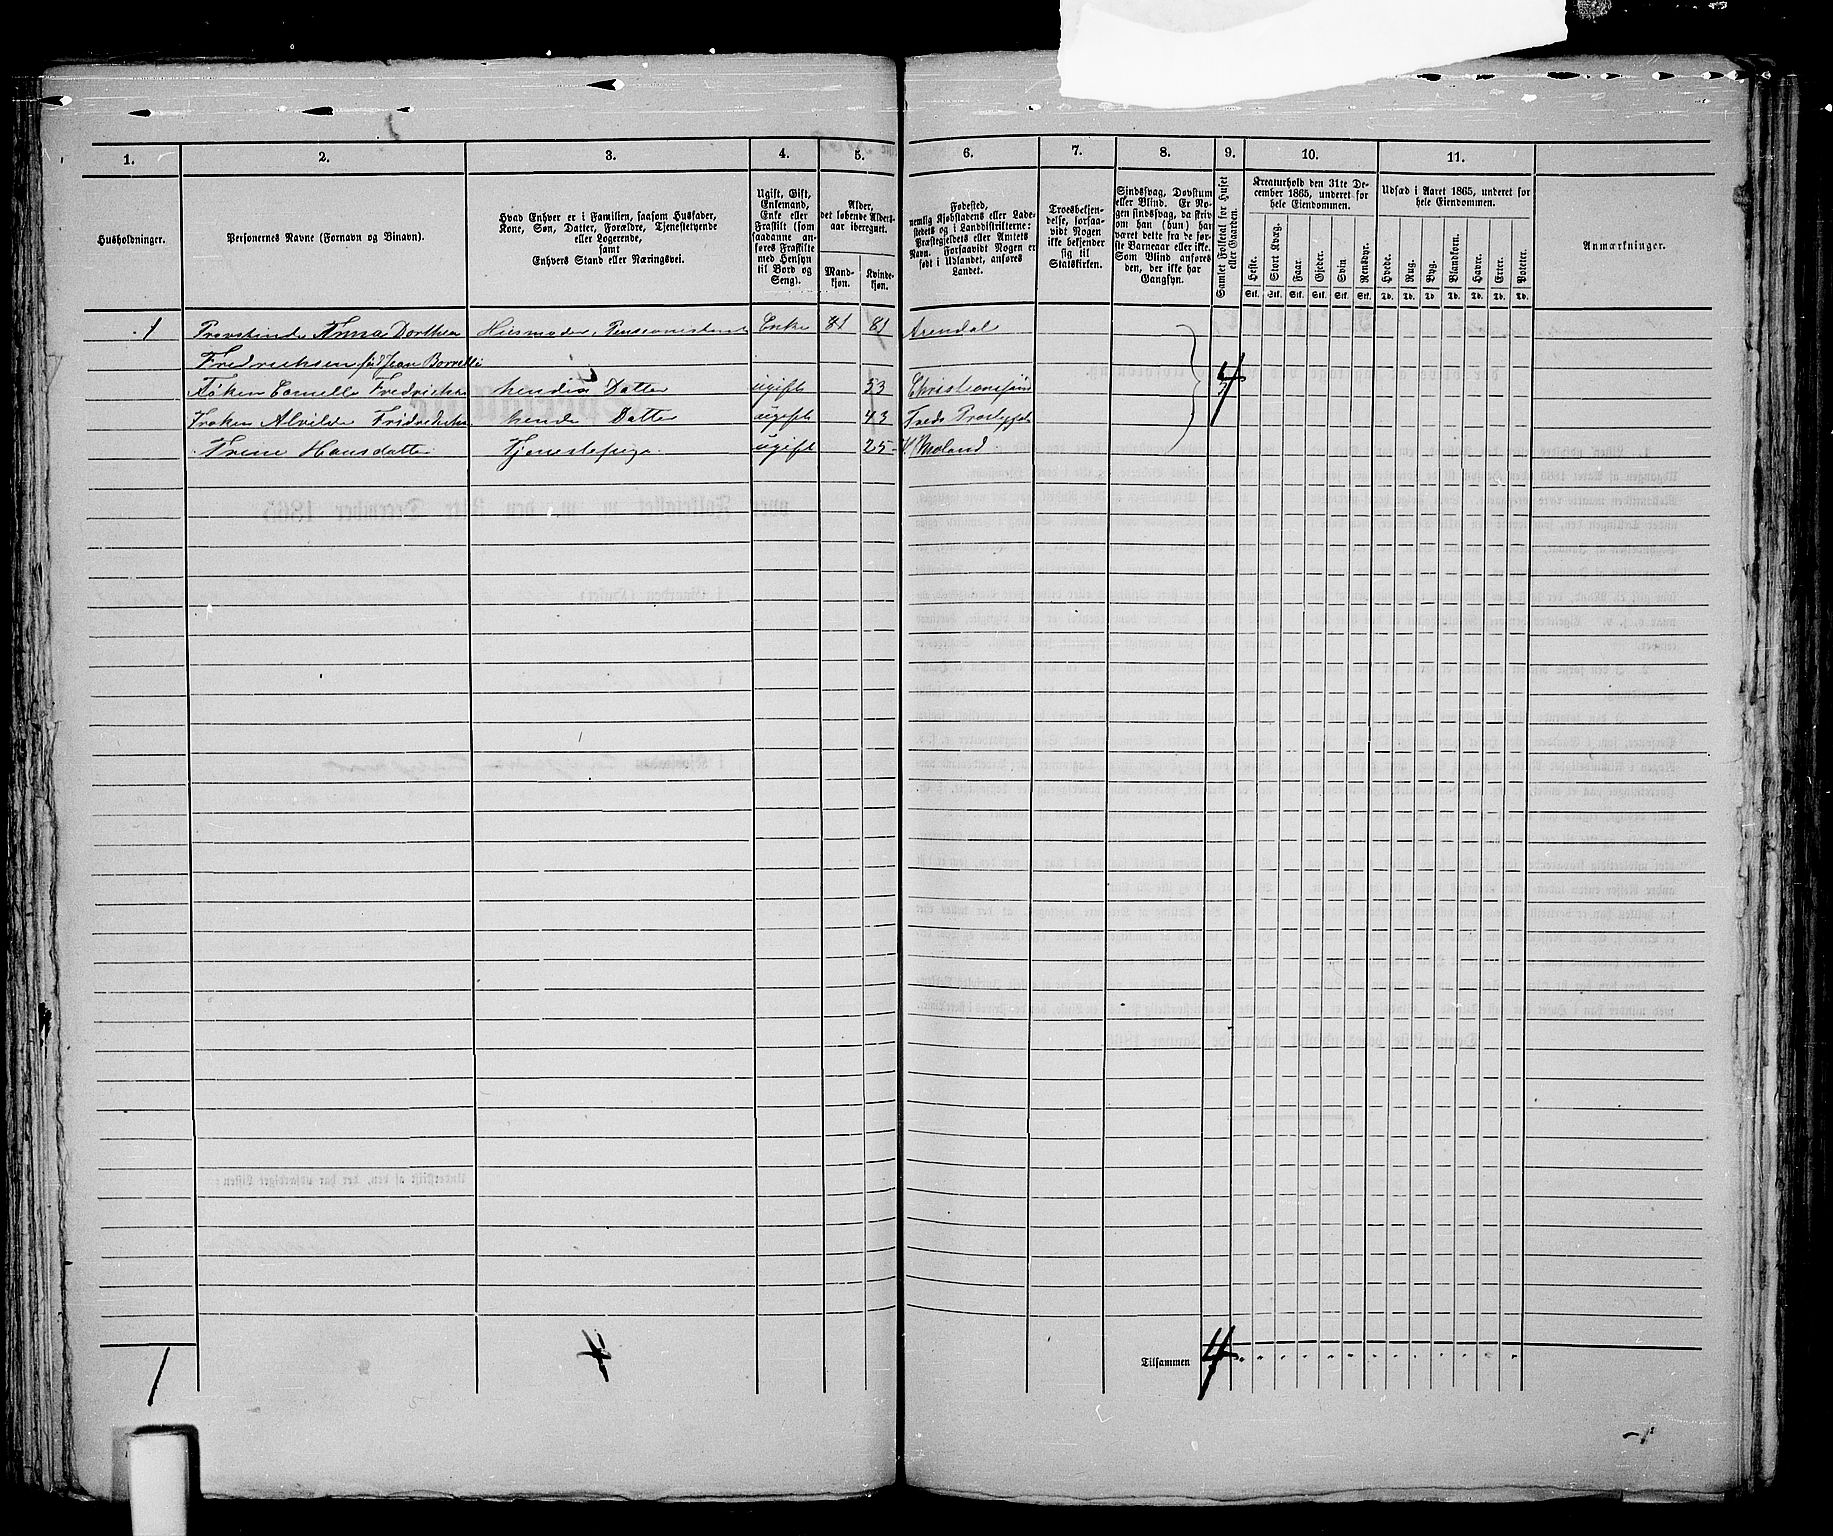 1. 2. 3. 4. 5. 6. 7. 8. 9. 10. 11.
Husholdninger.
Personernes Navne (Fornavn og Binavn).
Hvad Enhver er i Familien, saasom Husfader,
Kone, Søn, Datter, Forældre, Tjenestetyende
eller Logerende,
samt
Enhvers Stand eller Næringsvei.
Ugift, Gift,
Enkemand,
Enke eller
Fraskilt (som
saadanne an-
føres Fraskilte
med Hensyn
til Bord og
Seng).
Alder,
det løbende Alders-
aar iberegnet.
Mand-
kjøn.
Kvinde-
kjøn.
Fødested,
nemlig Kjøbstadens eller Lade-
stedets og i Landdistrikterne:
Præstegjeldets eller Amtets
Navn. Forsaavidt Nogen er
født i Udlandet, anføres
Landet.
Troesbekjen-
delse, forsaa-
vidt Nogen
ikke bekjender
sig til
Statskirken.
Sindssvag, Døvstum
eller Blind. Er No-
gen sindssvag, da skriv
om han (hun) har
været dette fra de før-
ste Barneaar eller ikke.
Som Blind anføres
den, der ikke har
Gangsyn.
Samlet Folketal for Huset
eller Gaarden.
Kreaturhold den 31te De-
cember 1865, underet for
hele Eiendommen.
Heste. Stort Kvæg. Faar. Gjeder. Svin Rensdyr.
Stk. Stk. Stk. Stk. Stk. Stk.
Udsæd i Aaret 1865, underet for
hele Eiendommen.
Hvede. Rug. Byg. Blandkorn. Havre. Erter. Poteter.
Td. Td. Td Td. Td. Td. Td.
Anmærkninger.
1 Provstinde Anna Dorthea Huusmoder, Pensionistinde Enke 81 81 Arendal
Fredriksen født Jean
Frøken Fredriksen hendes Datter ugift 53 Christianssund 4
Frøken Alvilde Fridriksen hendes Datter ugift 43
Trine Hansdatter Tjenestepige ugift 25 Moland
1 4 Tilsammen 4